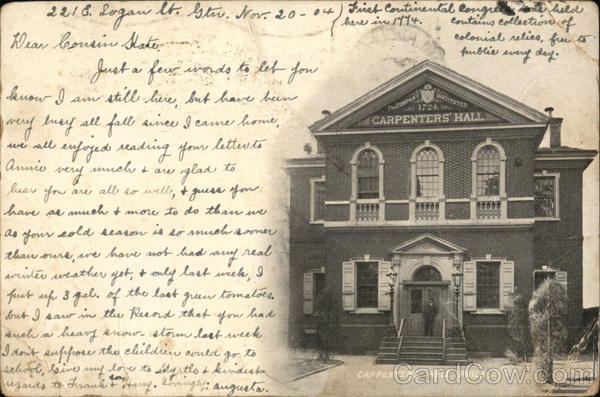 221 E. Logan St. Gtn. Nov. 20-04
First Continental Congress was held
here in 1774. contains collection of
colonial relics, free to
public every day.
Dear Cousin Kate
Just a few words to let you
know I am still here, but have been
very busy all fall since I came home,
we all enjoyed reading your letter to
Annie very much & are glad to
hear you are all so well, & guess you
have as much & more to do than we
as your cold season is so much sooner
than ours, we have not had any real
winter weather yet, & only last week, I
put up 3 gal. of the last green tomatoes.
but I saw in the Record that you had
such a heavy snow storm last week
I don't suppose the children could go to
school, give my love to Myrtle & kindest
regards to Frank & Harry. Lovingly Augusta.
THE COMPANY INSTITUTED
1724
CARPENTERS' HALL
CARPENTERS
CardCow.com